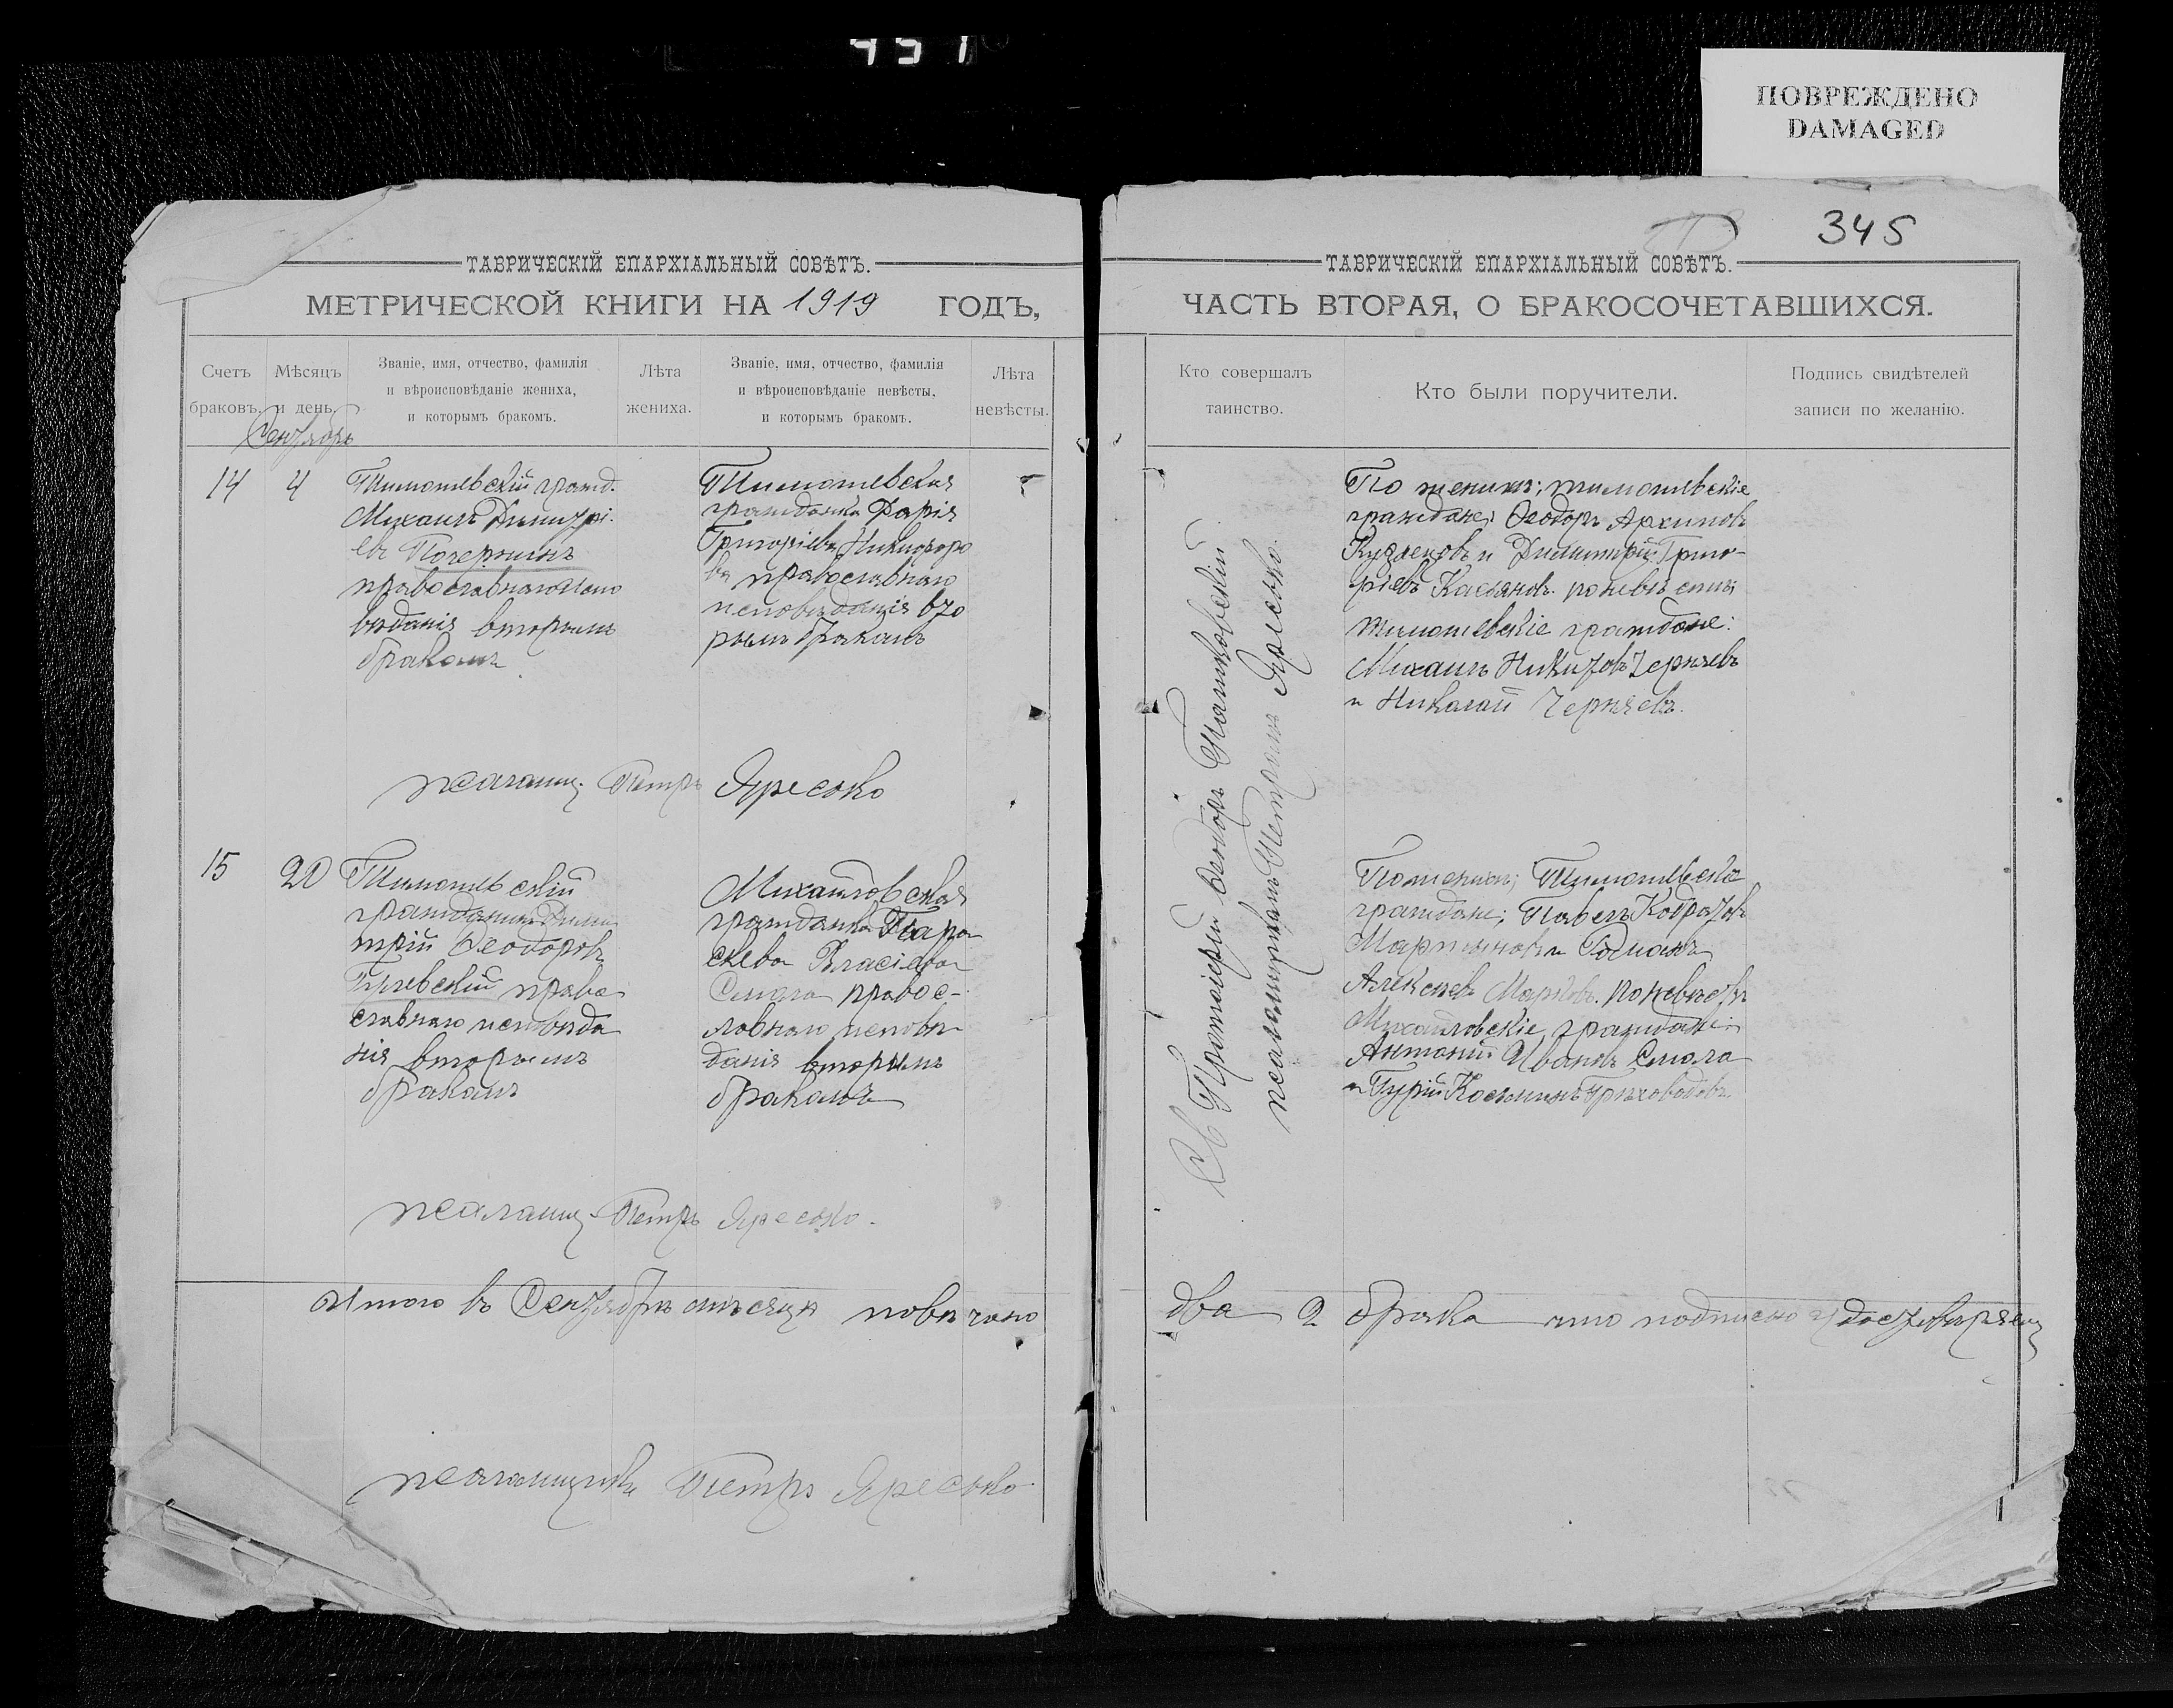 ПОВРЕЖДЕНО
DAMAGED
345
ТАВРИЧЕСКІЙ ЕПАРХІАЛЬНЫЙ СОВѢТЪ.
МЕТРИЧЕСКОЙ КНИГИ НА 1919 ГОДЪ,
Счетъ
браковъ.
Мѣсяцъ
и день.
Званіе, имя, отчество, фамилія
и вѣроисповѣданіе жениха,
и которымъ бракомъ.
Лѣта
жениха.
Званіе, имя, отчество, фамилія
и вѣроисповѣданіе невѣсты,
и которымъ бракомъ.
Лѣта
невѣсты.
Сентябрь
14
4
Тимошевскій гражд.
Михаилъ Димитрі-
евъ
православнаго испо
вѣданія вторымъ
бракомъ
Тимошевская
гражданка Дарія
Григоріева Никифоро
ва православнаго
исповѣданія вто
рымъ бракомъ
псаломщ. Петръ Яресько
15
20
Тимошевскій
гражданинъ Дими
трій Ѳеодоровъ
право
славнаго исповѣда
нія вторымъ
бракомъ
Михайловская
гражданка Пара
скева Власіева
Смола правос-
лавнаго исповѣ
данія вторымъ
бракомъ
псаломщ. Петръ Яресько.
Итого въ Сентябрѣ мѣсяцѣ повѣнчано
псаломщикъ Петръ Яресько
ТАВРИЧЕСКІЙ ЕПАРХІАЛЬНЫЙ СОВѢТЪ.
ЧАСТЬ ВТОРАЯ, О БРАКОСОЧЕТАВШИХСЯ.
Кто совершалъ
таинство.
Кто были поручители.
Подпись свидѣтелей
записи по желанію.
Протоіерей Ѳеодоръ
псаломщикомъ Петромъ Яресько.
По женихѣ; тимошевскіе
граждане: Ѳеодоръ Архиповъ
и Димитрій Григо-
рьевъ Касьяновъ. по невѣстѣ;
тимошевскіе граждане:
Михаилъ Никитовъ Черняевъ
и Николай Черняевъ.
По женихѣ; Тимошевскіе
граждане; Павелъ Кодратовъ
Мартыновъ и Романъ
Алексѣевъ по невѣстѣ
Михайловскіе граждане:
Антоній Ивановъ Смола
и Гурій Косьминъ Грѣховодовъ.
два 2 брака что подписью удостовѣряемъ